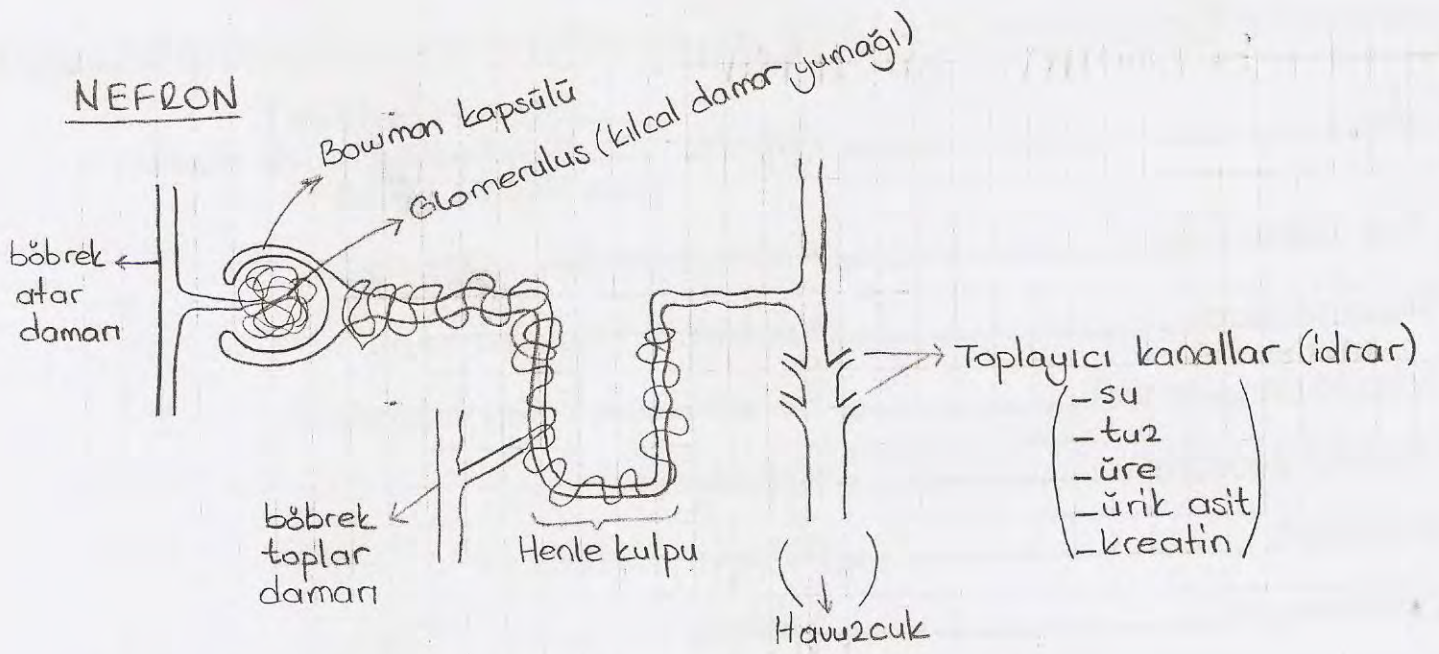 NEFRON
Bowman kapsülü
Glomerulus (kılcal damar yumağı)
böbrek
atar
damarı
Toplayıcı kanallar (idrar)
- su
- tuz
- üre
- ürik asit
- kreatin
böbrek
toplar
damarı
Henle kulpu
Havuzcuk